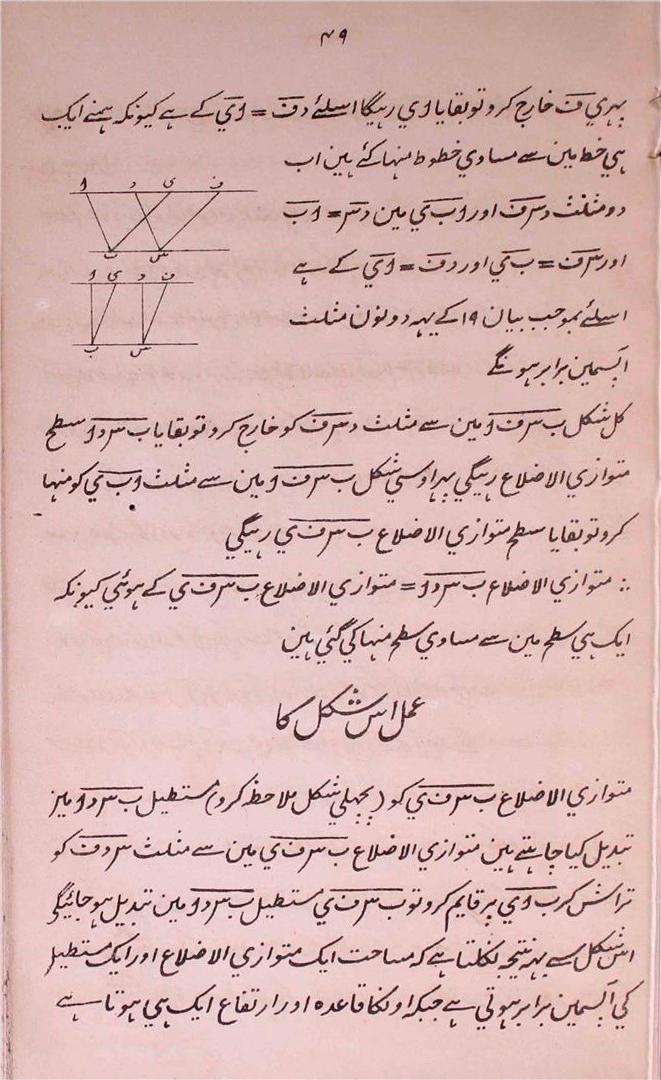 ۴۹
پہر ي ف خارج کرو تو بقایا ا ي رہیگا اسلئے د ف = ا ي کے ہے کیونکہ ہمنے ایک
ہي خط مین سے مساوي خطوط منہا کئے ہین اب
دو مثلث د س ف اور ا ب ي مین د س = ا ب
اور س ف = ب ي اور د ف = ا ي کے ہے
اسلئے بموجب بیان ۱۹ کے یہہ دونون مثلث
آپسمین برابر ہونگے
ا د ی ف
ب س
ا ی د ف
ب س
کل شکل ب س ف ا مین سے مثلث د س ف کو خارج کرو تو بقایا ب س د ا سطح
متوازي الاضلاع رہیگي پہر اوسي شکل ب س ف ا مین سے مثلث ا ب ي کو منہا
کرو تو بقایا سطح متوازي الاضلاع ب س ف ي رہیگي
∴ متوازي الاضلاع ب س د ا = متوازي الاضلاع ب س ف ي کے ہوئي کیونکہ
ایک ہي سطح مین سے مساوي سطح منہا کي گئي ہین
عمل اس شکل کا
متوازي الاضلاع ب س ف ي کو (پچھلي شکل ملاحظہ کرو) مستطیل ب س د ا میز
تبدیل کیا چاہتے ہین متوازي الاضلاع ب س ف ي مین سے مثلث س د ف کو
تراش کر ب ا ي پر قایم کرو تو ب س ف ي مستطیل ب س د ا مین تبدیل ہو جائیگي
اس شکل سے یہہ نتیجہ نکلتا ہے کہ مساحت ایک متوازي الاضلاع اور ایک مستطیل
کي آپسمین برابر ہوتي ہے جبکہ اونکا قاعدہ اور ارتفاع ایک ہي ہوتا ہے